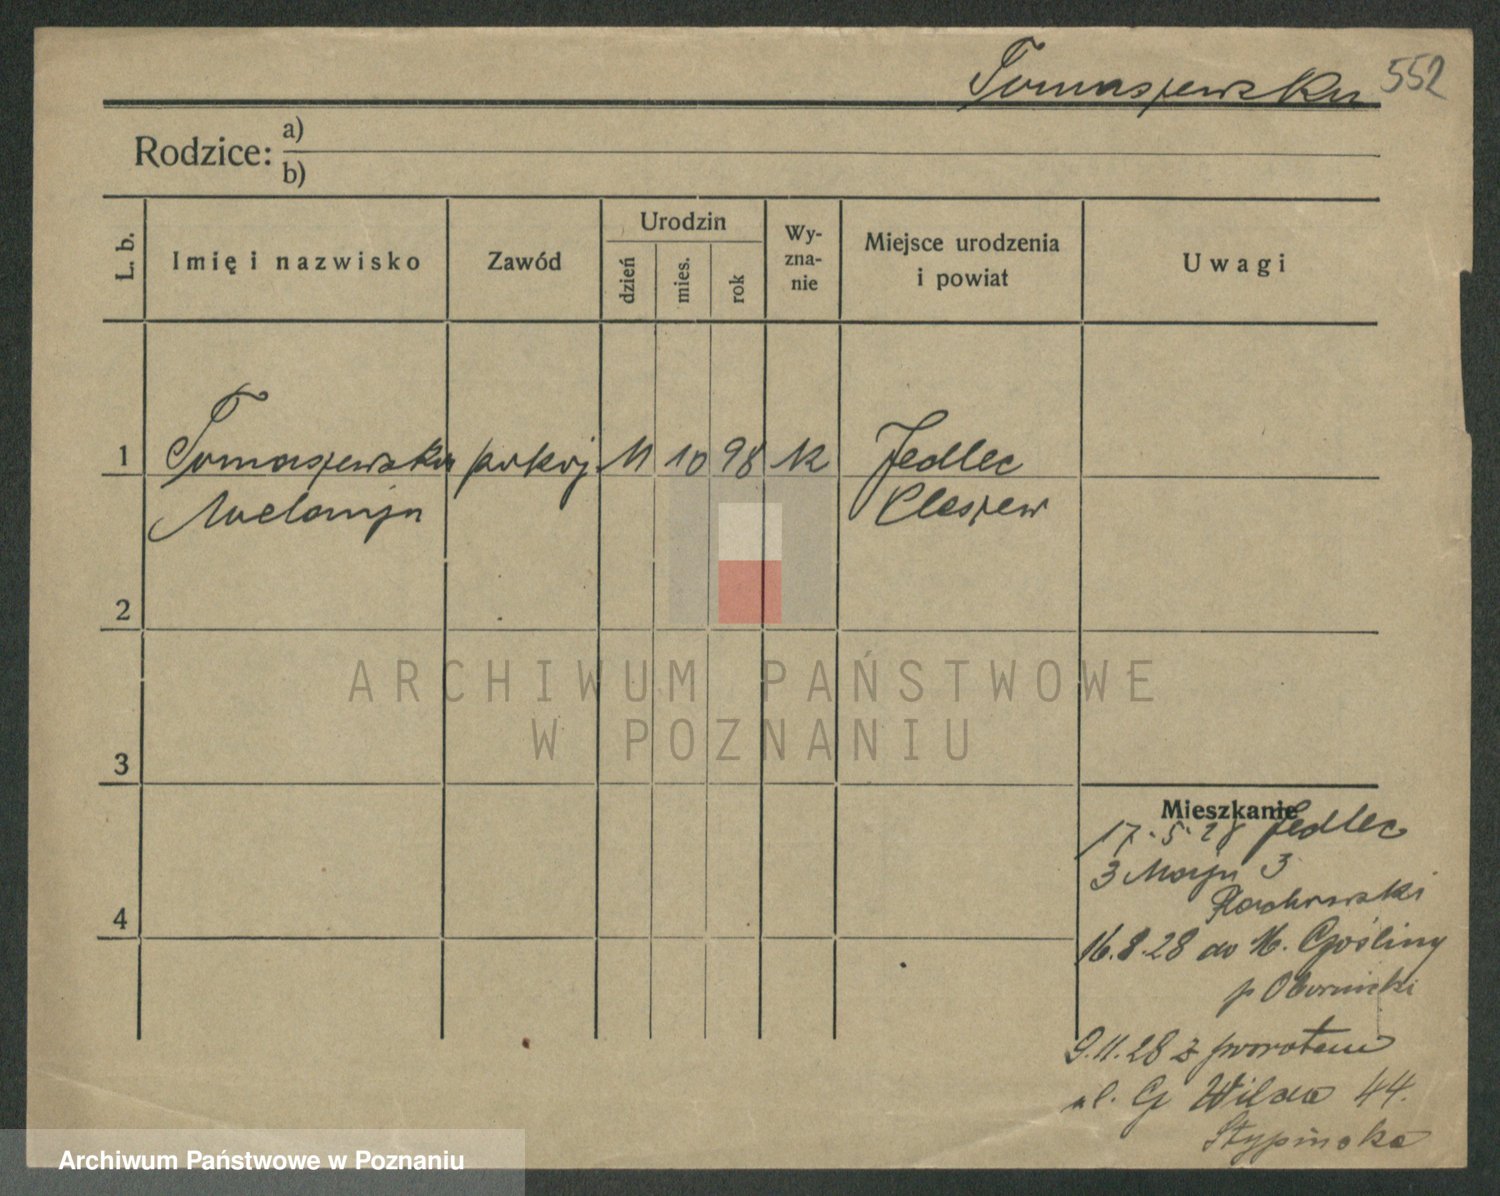 Tomaszewska 552
Rodzice: a)
b)
L. b.
Imię i nazwisko
Zawód
Urodzin
dzień
mies.
rok
Wy-
zna-
nie
Miejsce urodzenia
i powiat
Uwagi
1 Tomaszewska pokoj 11 10 98 K Jedlec
Melanja Pleszew
2
ARCHIWUM PAŃSTWOWE
W POZNANIU
3
Mieszkanie
17.5.28 Jedlec
3 Maja 3
4
16.8.28 do M. Gośliny
p Obornicki
9.11.28 z powrotem
ul. G Wilda 44.
Stypińska
Archiwum Państwowe w Poznaniu